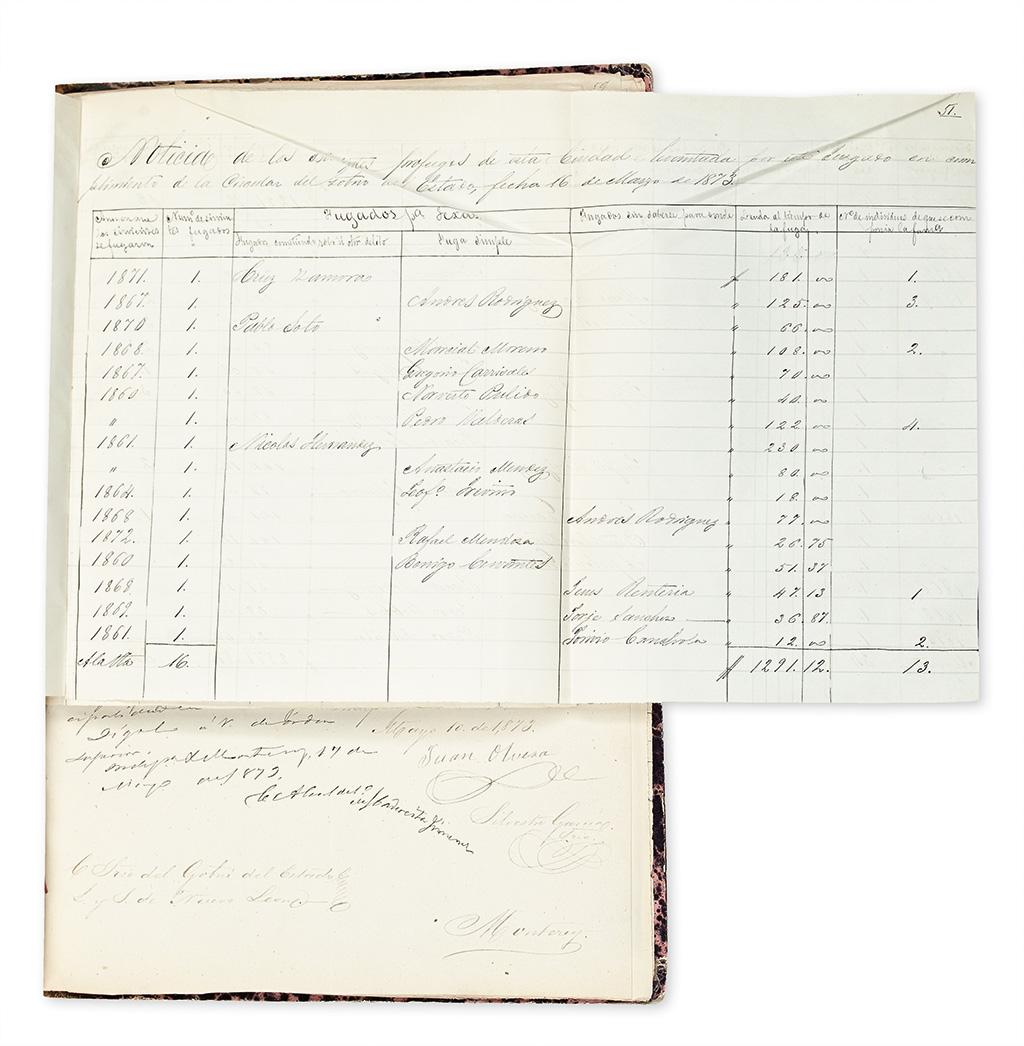 51.
Noticia de los sirvientes profugos de esta Ciudad levantada por este Juzgado en cum
plimiento de la Circular del Gobno del Estado, fecha 16 de Marzo de 1873.
Años en que los sirvientes se fugaron | Numº de sirvientes fugados | Fugados pª Texas | Fugados sin saberse para donde | deuda al tiempo de la fuga | Nº de individuos de que se componia la familª
Fugados cometiendo robo ú otro delito | Fuga simple
1871. 1. Cruz Zamora $ 181. 00 1.
1867. 1. Andres Rodriguez " 125. 00 3.
1870 1. Pablo Soto " " 66. 00
1868. 1. Marcial Moreno " 108. 00 2.
1867. 1. Gregorio Carrisales " 70. 00
1860 1. Navarto Pulido " 40. 00
" 1. Pedro " 122. 00 4.
1861. 1. Nicolas Hernandez " 230. 00
" 1. Anastacio Mendez " 80. 00
1864. 1. Teofº Treviño " 18. 00
1868 1. Andres Rodriguez " 77. 00
1872. 1. Rafael Mendoza " 26. 75
1860 1. Benigo Cervantes " 51. 37
1868. 1. Renteria " 47. 13 1
1869. 1. Jorje Sanches " 36. 87.
1861. 1. " 12. 00 2.
16. $ 1291. 12. 13.
Mayo 10 de 1873.
Dígolo á V. de órden
superior.
Monterey, 17 de
Mayo de 1873.
Juan Olvera
Silvestre
Srio
C Srio del Gobno del Estado
L. y S. de Nuevo Leon
Monterey.